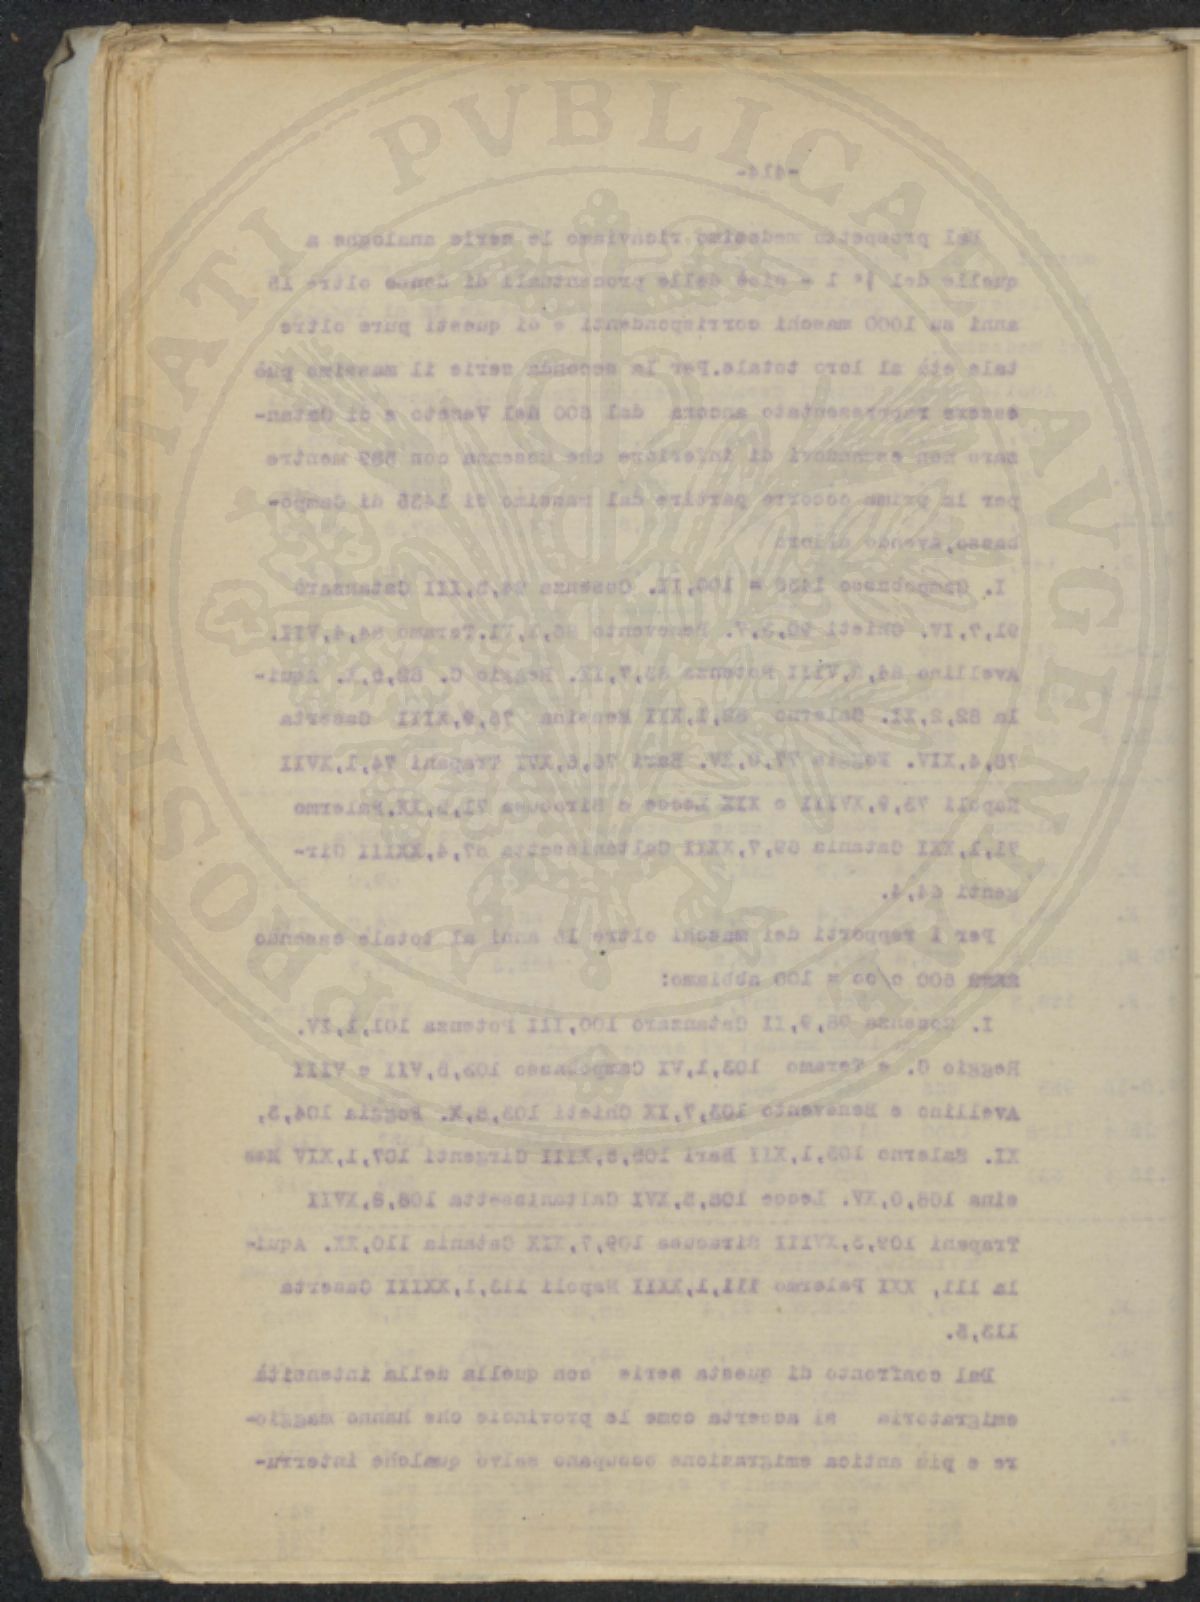 -414-
Dal prospetto medesimo ricaviamo le serie analoghe a
quelle del 1° - cioè delle procentuali di donne oltre 15
anni su 1000 maschi corrispondenti e di questi pure oltre
tale età al loro totale. Per la seconda serie il massimo può
essere rappresentato ancora dal 600 del Veneto e di Catan-
zaro non essendovi di inferiore che Cosenza con 589 mentre
per la prima occorre partire dal massimo di 1436 di Campo-
basso, avendo allora
I. Campobasso 1436 = 100, II. Cosenza 94,5, III Catanzaro
91,7, IV. Chieti 90,3, V. Benevento 86,1, VI. Teramo 84,4, VII.
Avellino 84,3, VIII Potenza 83,7, IX. Reggio C. 82,6, X. Aqui-
la 82,2, XI. Salerno 82,1, XII Messina 78,9, XIII Caserta
78,4, XIV. Foggia 77,0, XV. Bari 76,6, XVI Trapani 74,1, XVII
Napoli 73,9, XVIII e XIX Lecce e Siracusa 71,5, XX. Palermo
71,1, XXI Catania 69,7, XXII Caltanissetta 67,4, XXIII Gir-
genti 64,4.
Per i rapporti dei maschi oltre 15 anni al totale essendo
600 o/oo = 100 abbiamo:
I. Cosenza 98,9, II Catanzaro 100, III Potenza 101,1, IV.
Reggio C. e Teramo 103,1, VI Campobasso 103,5, VII e VIII
Avellino e Benevento 103,7, IX Chieti 103,8, X. Foggia 104,5,
XI. Salerno 105,1, XII Bari 105,5, XIII Girgenti 107,1, XIV Mes
sina 108,0, XV. Lecce 108,5, XVI Caltanissetta 108,8, XVII
Trapani 109,5, XVIII Siracusa 109,7, XIX Catania 110, XX. Aqui-
la 111, XXI Palermo 111,1, XXII Napoli 113,1, XXIII Caserta
113,5.
Dal confronto di questa serie con quella della intensità
emigratoria si accerta come le provincie che hanno maggio-
re e più antica emigrazione occupano salvo qualche interru-
PROSPERITATI PVBLICAE AVGENDAE